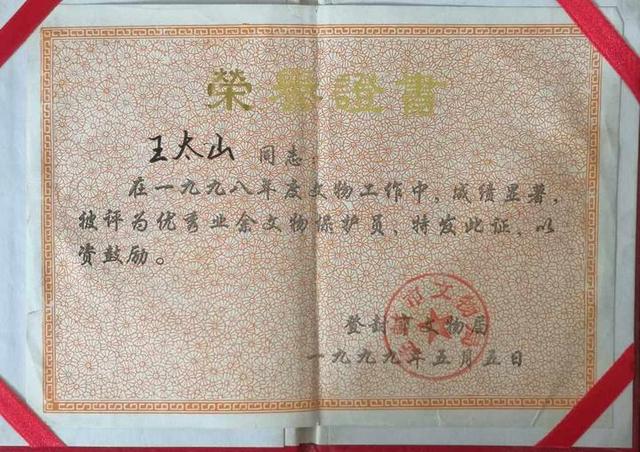 榮譽證書
王太山 同志：
在一九九八年度文物工作中，成绩显著，
被评为优秀业余文物保护员，特发此证，以
资鼓励。
登封市文物局
一九九九年五月五日